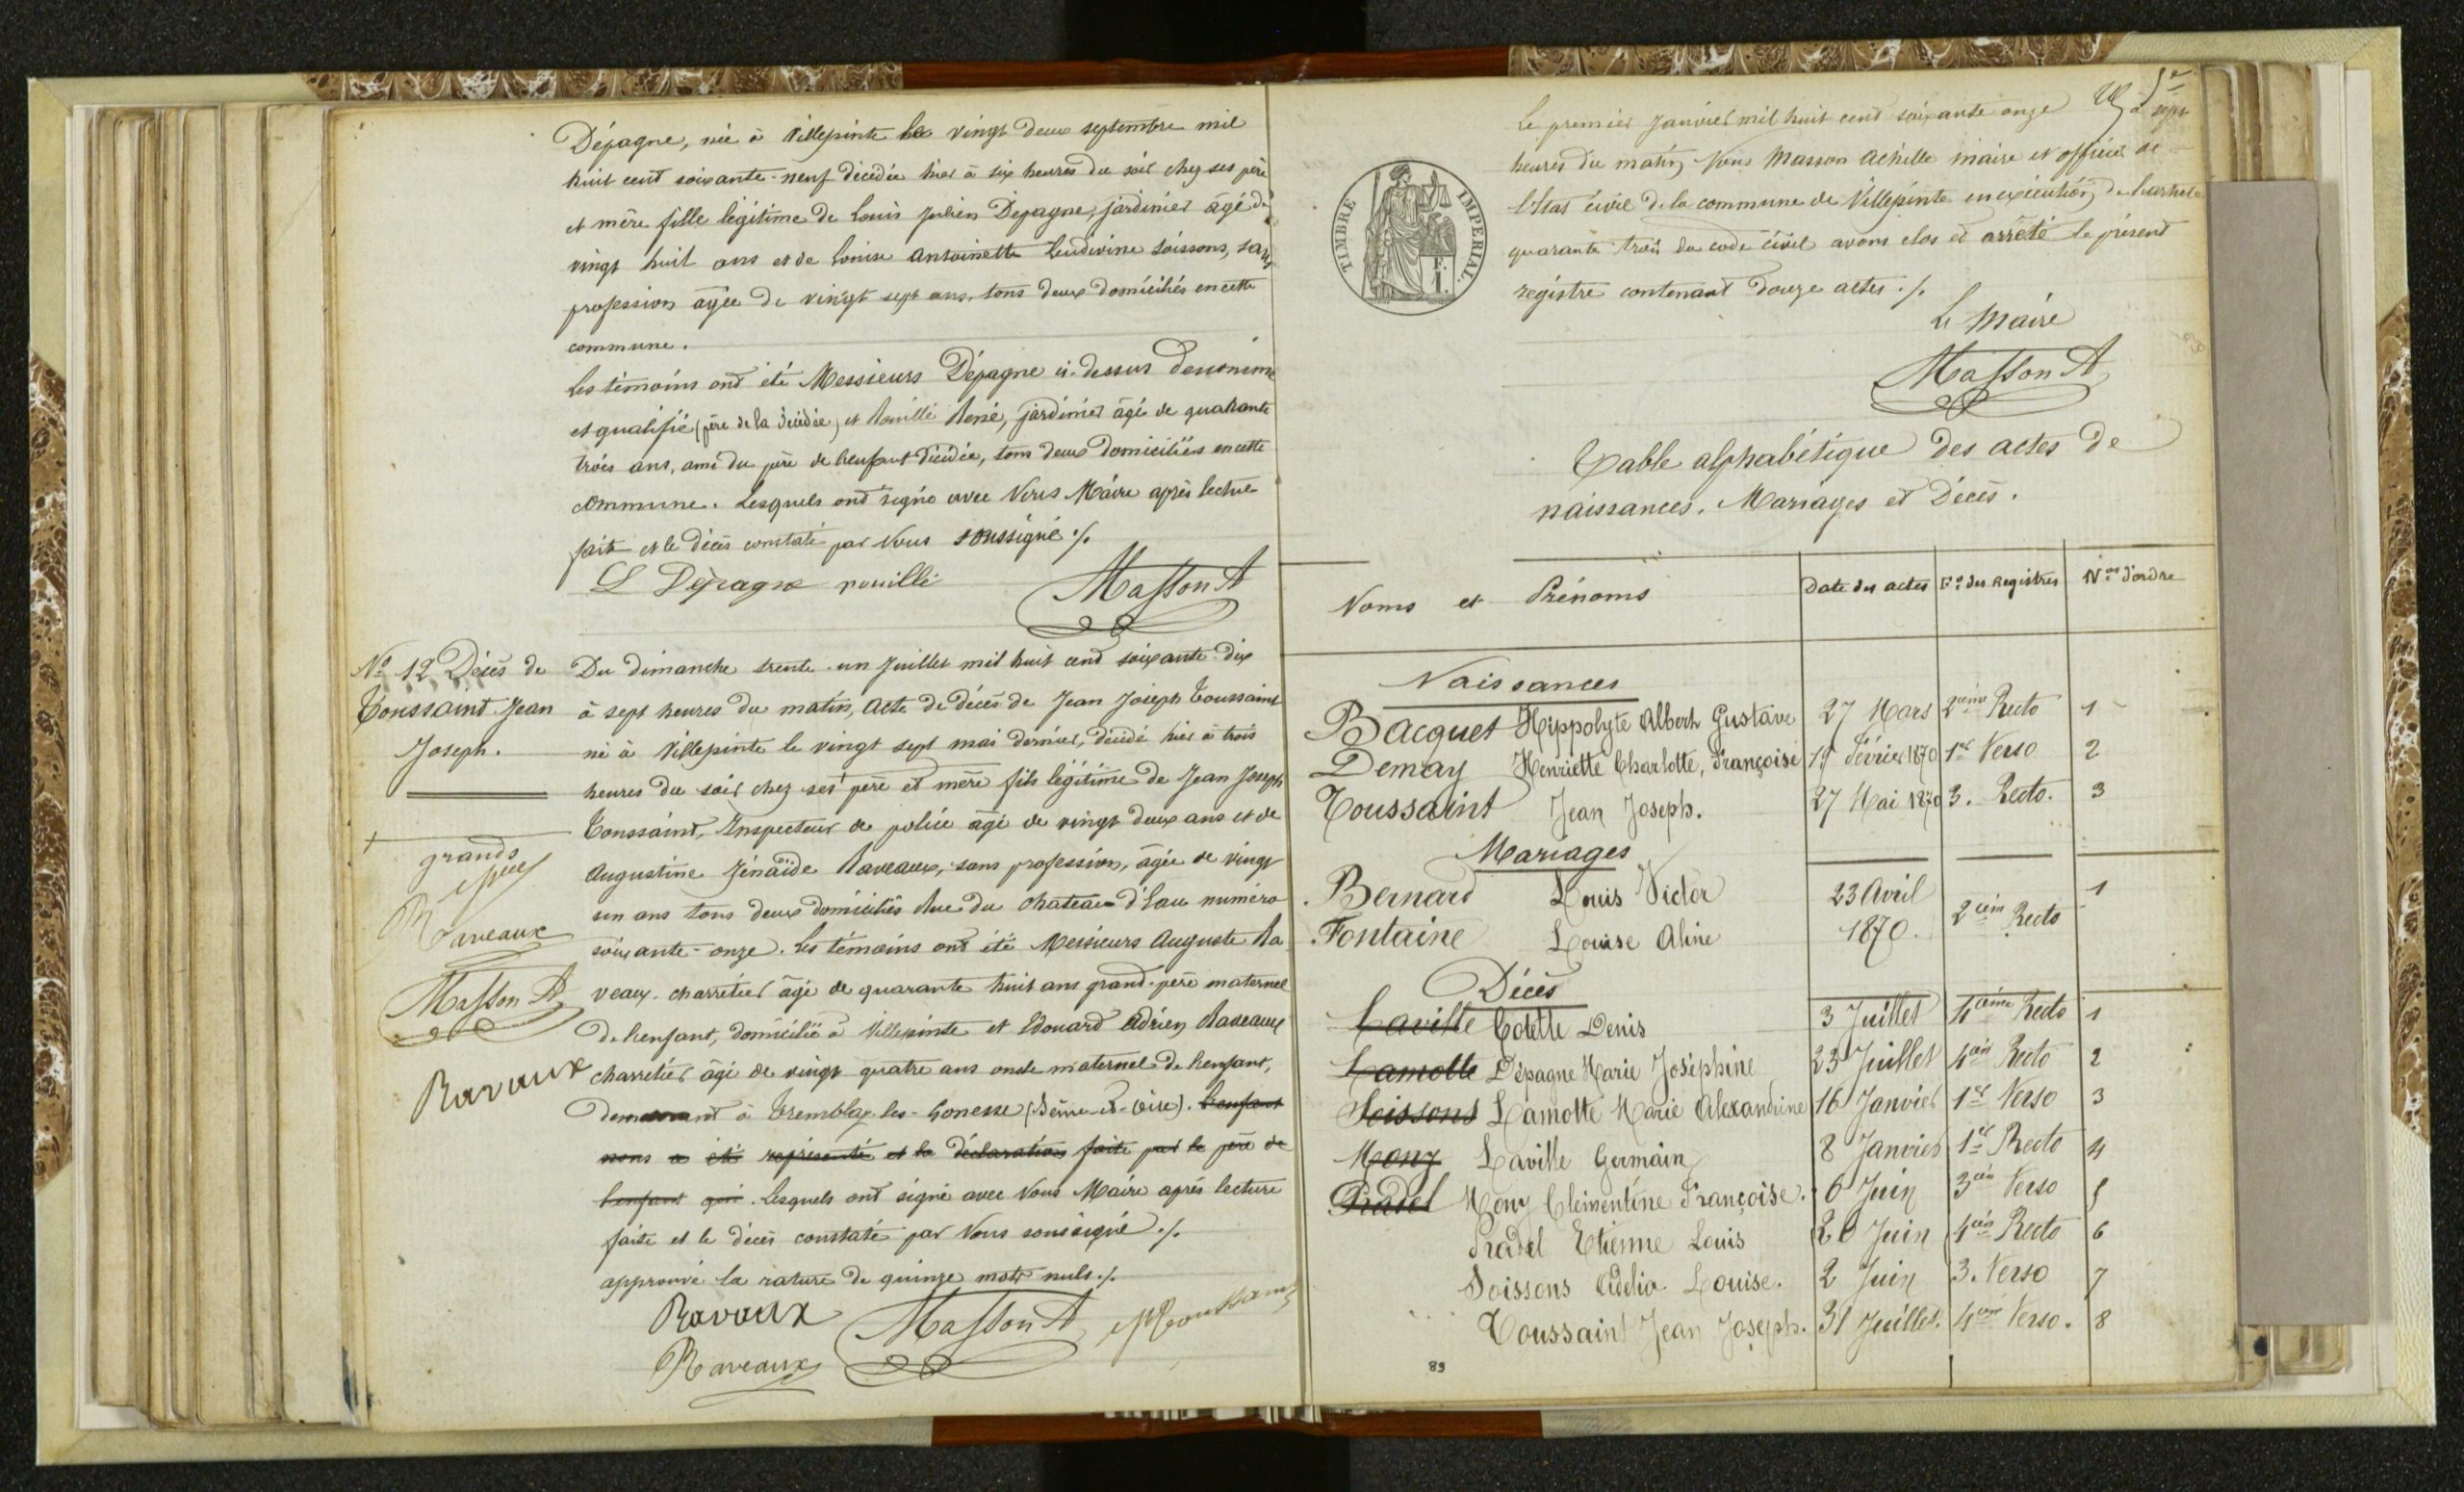 Dépagne, née à Villepinte le vingt deux septembre mil
huit cent soixante-neuf décédée hier à six heures du soir chez ses père
et mère fille légitime de Louis Julien Dépagne, jardinier âgé de
vingt huit ans et de Louise Antoinette Ludivine Soissons, sans
profession âgée de vingt sept ans, tous deux domiciliés en cette
commune.
Les témoins ont été Messieurs Dépagne ci-dessus dénommé
et qualifié (père de la décédée) et Rouillé René, jardinier âgé de quarante
trois ans, ami du père de l'enfant décédée, tous deux domiciliés en cette
commune. Lesquels ont signé avec Nous Maire après lecture
faite et le décès constaté par Nous soussigné ./.
L Dépagne rouillé Masson A
No 12 Décès de
Toussaint Jean
Joseph.
Du dimanche trente-un Juillet mil huit cent soixante-dix
à sept heures du matin, Acte de décès de Jean Joseph Toussaint
né à Villepinte le vingt sept mai dernier, décédé hier à trois
heures du soir chez ses + père et mère fils légitime de Jean Joseph
Toussaint, Inspecteur de police âgé de vingt deux ans et de
Augustine Zénaïde Raveaux, sans profession, âgée de vingt
un ans tous deux domiciliés Rue du Chateau d'Eau numéro
soixante-onze. Les témoins ont été Messieurs Auguste Ra
veaux charretier âgé de quarante huit ans grand-père maternel
de l'enfant, domicilié à Villepinte et Edouard Adrien Raveaux
charretier âgé de vingt quatre ans oncle maternel de l'enfant,
demeurant à Tremblay-les-Gonesse (Seine-et-Oise). l'enfant
nous a été représenté et la déclaration faite par le père de
l'enfant qui. Lesquels ont signé avec Nous Maire après lecture
faite et le décès constaté par Nous soussigné ./.
approuvé la rature de quinze mots nuls ./.
+ grands
Raveaux
Masson A
Ravaux
Ravaux Masson A Toussaint
Raveaux
Le premier Janvier mil huit cent soixante onze à sept
heures du matin, Nous Masson Achille maire et officier de
l'Etat civil de la commune de Villepinte en exécution de l'article
quarante trois du code civil avons clos et arrêté le présent
registre contenant douze actes ./.
Le Maire
Masson A
TIMBRE IMPERIAL
1 F.
Table alphabétique des actes de
naissances, Mariages et Décès.
Noms et Prénoms Date des actes Fo des Registres Nos d'ordre
Naissances
Bacquet Hippolyte Albert Gustave 27 Mars 2ième Recto 1
Demay Henriette Charlotte, Françoise 19 Février 1870 1er Verso 2
Toussaint Jean Joseph. 27 Mai 1870 3. Recto. 3
Mariages
Bernard Louis Victor 23 Avril 1
Fontaine Louise Aline 1870. 2ièm Recto
Décès
Laville Colette Denis 3 Juillet 4ième Recto 1
Lamotte Dépagne Marie Joséphine 23 Juillet 4ièm Recto 2
Soissons Lamotte Marie Alexandrine 16 Janvier 1er Verso 3
Mony Laville Germain 8 Janvier 1er Recto 4
Pradel Mony Clémentine Françoise. 6 Juin 3ièm Verso 5
Pradel Etienne Louis 20 Juin 4ièm Recto 6
Soissons Adélia Louise. 2 Juin 3. Verso 7
Toussaint Jean Joseph. 31 Juillet. 4ièm Verso. 8
89